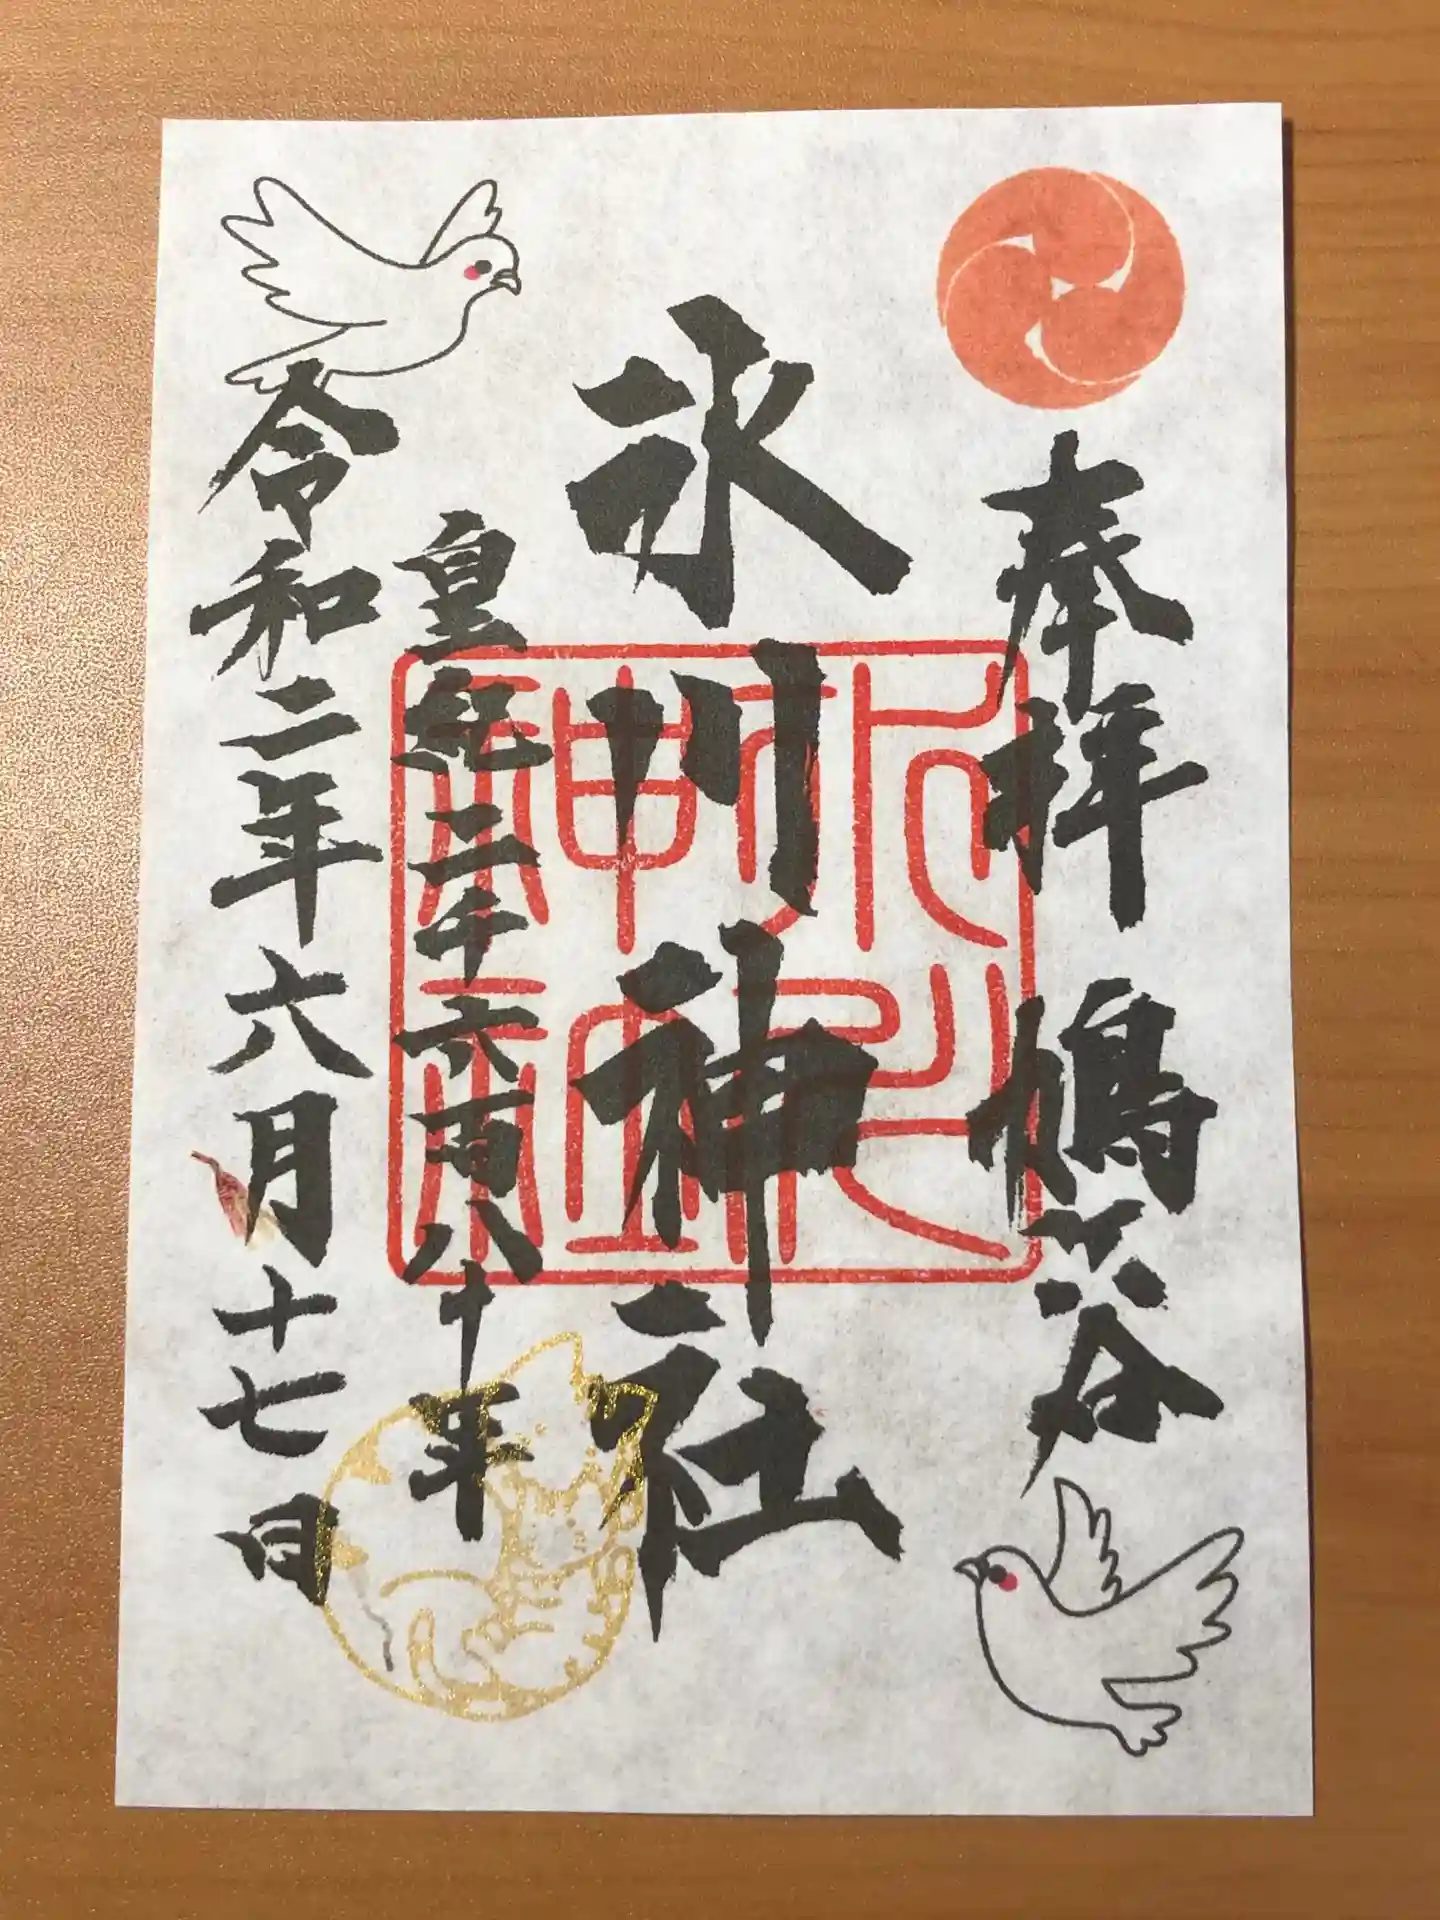 奉拝 鳩ヶ谷
氷川神社
皇紀二千六百八十年
令和二年六月十七日
氷川
神社